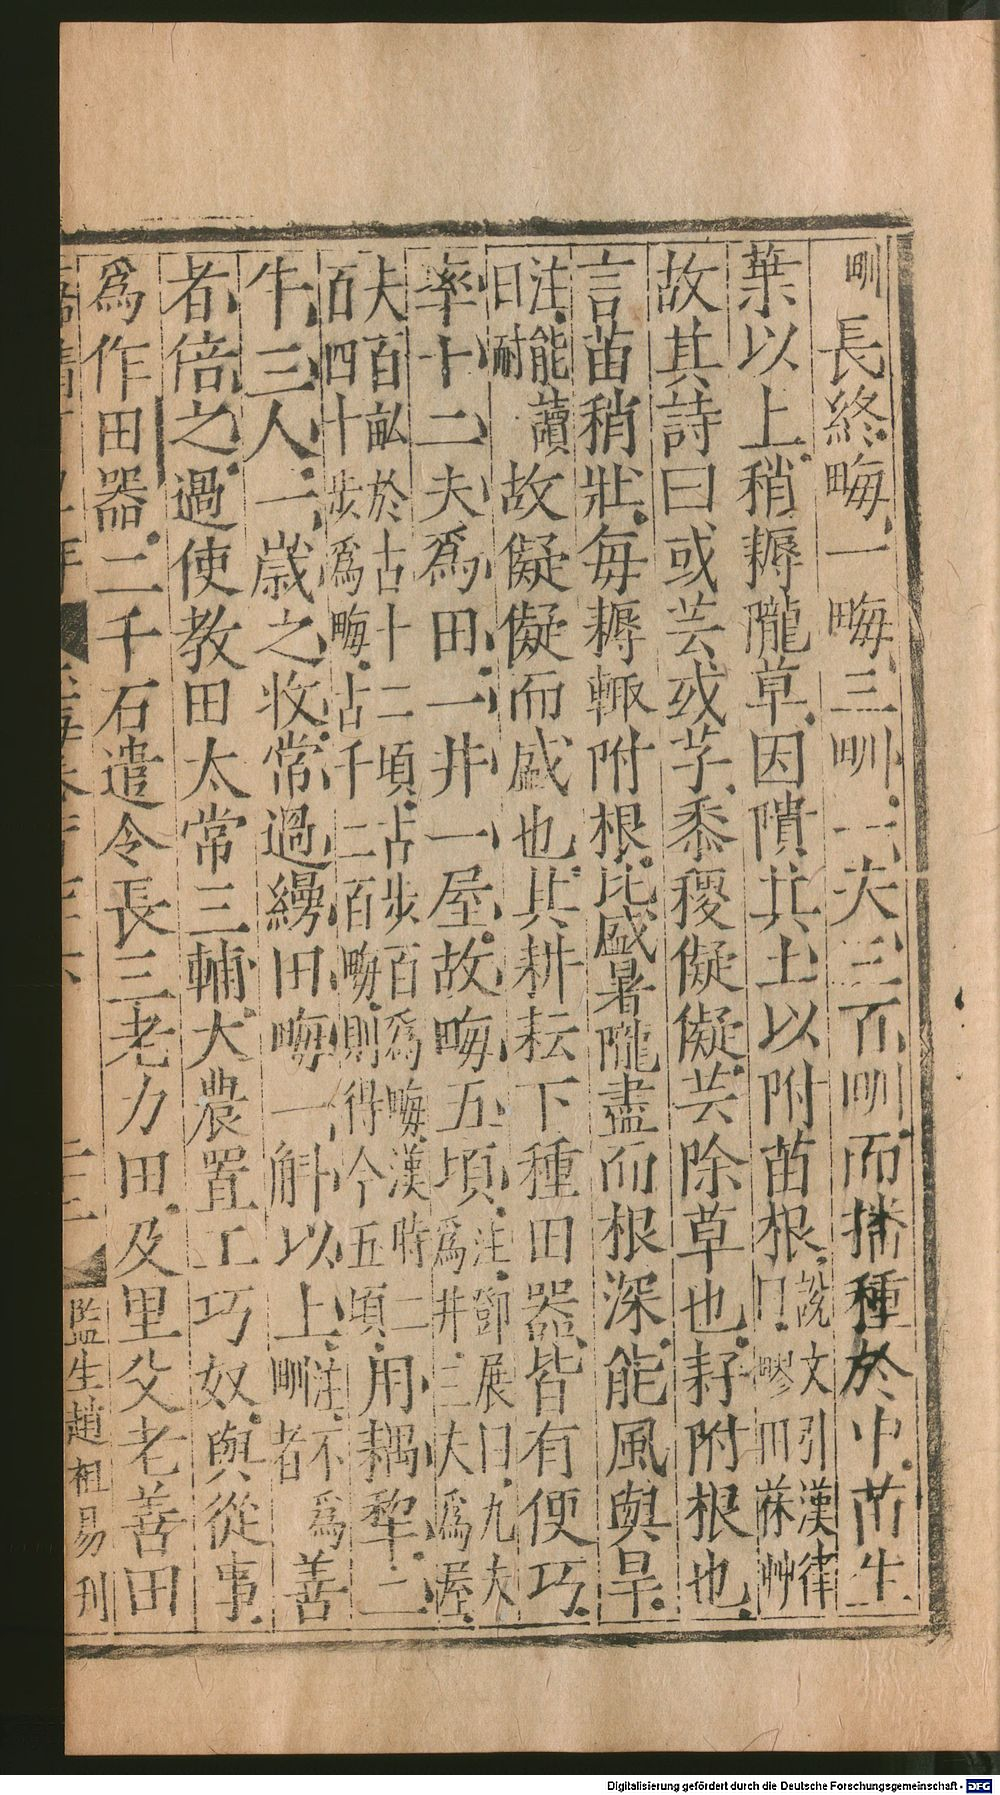 甽長終畮一畮三甽一夫三百甽而播種於中苗生
葉以上稍耨隴草因隤其土以附苗根說文引漢律曰䟫田茠艸
故其詩曰或芸或芓黍稷儗儗芸除草也芓附根也
言苗稍壯每耨輒附根比盛暑隴盡而根深能風與旱
注能讀曰耐故儗儗而盛也其耕耘下種田器皆有便巧
率十二夫爲田一井一屋故畮五頃注鄧展曰九夫爲井三夫爲屋
夫百畝於古十二頃古步百爲畮漢時二百四十步爲畮古千二百畮則得今五頃用耦犂二
牛三人一歲之收常過縵田畮一斛以上注不爲甽者善
者倍之過使教田太常三輔大農置工巧奴與從事
爲作田器二千石遣令長三老力田及里父老善田
監生趙祖易刊
Digitalisierung gefördert durch die Deutsche Forschungsgemeinschaft - DFG